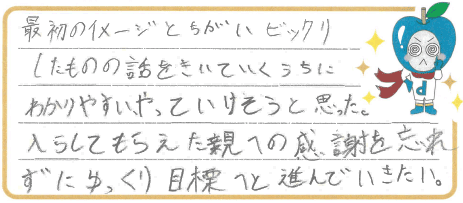 最初のイメージとちがいビックリ
したものの話をきいていくうちに
わかりやすい、やっていけそうと思った。
入らしてもらえた親への感謝を忘れ
ずにゆっくり目標へと進んでいきたい。
d